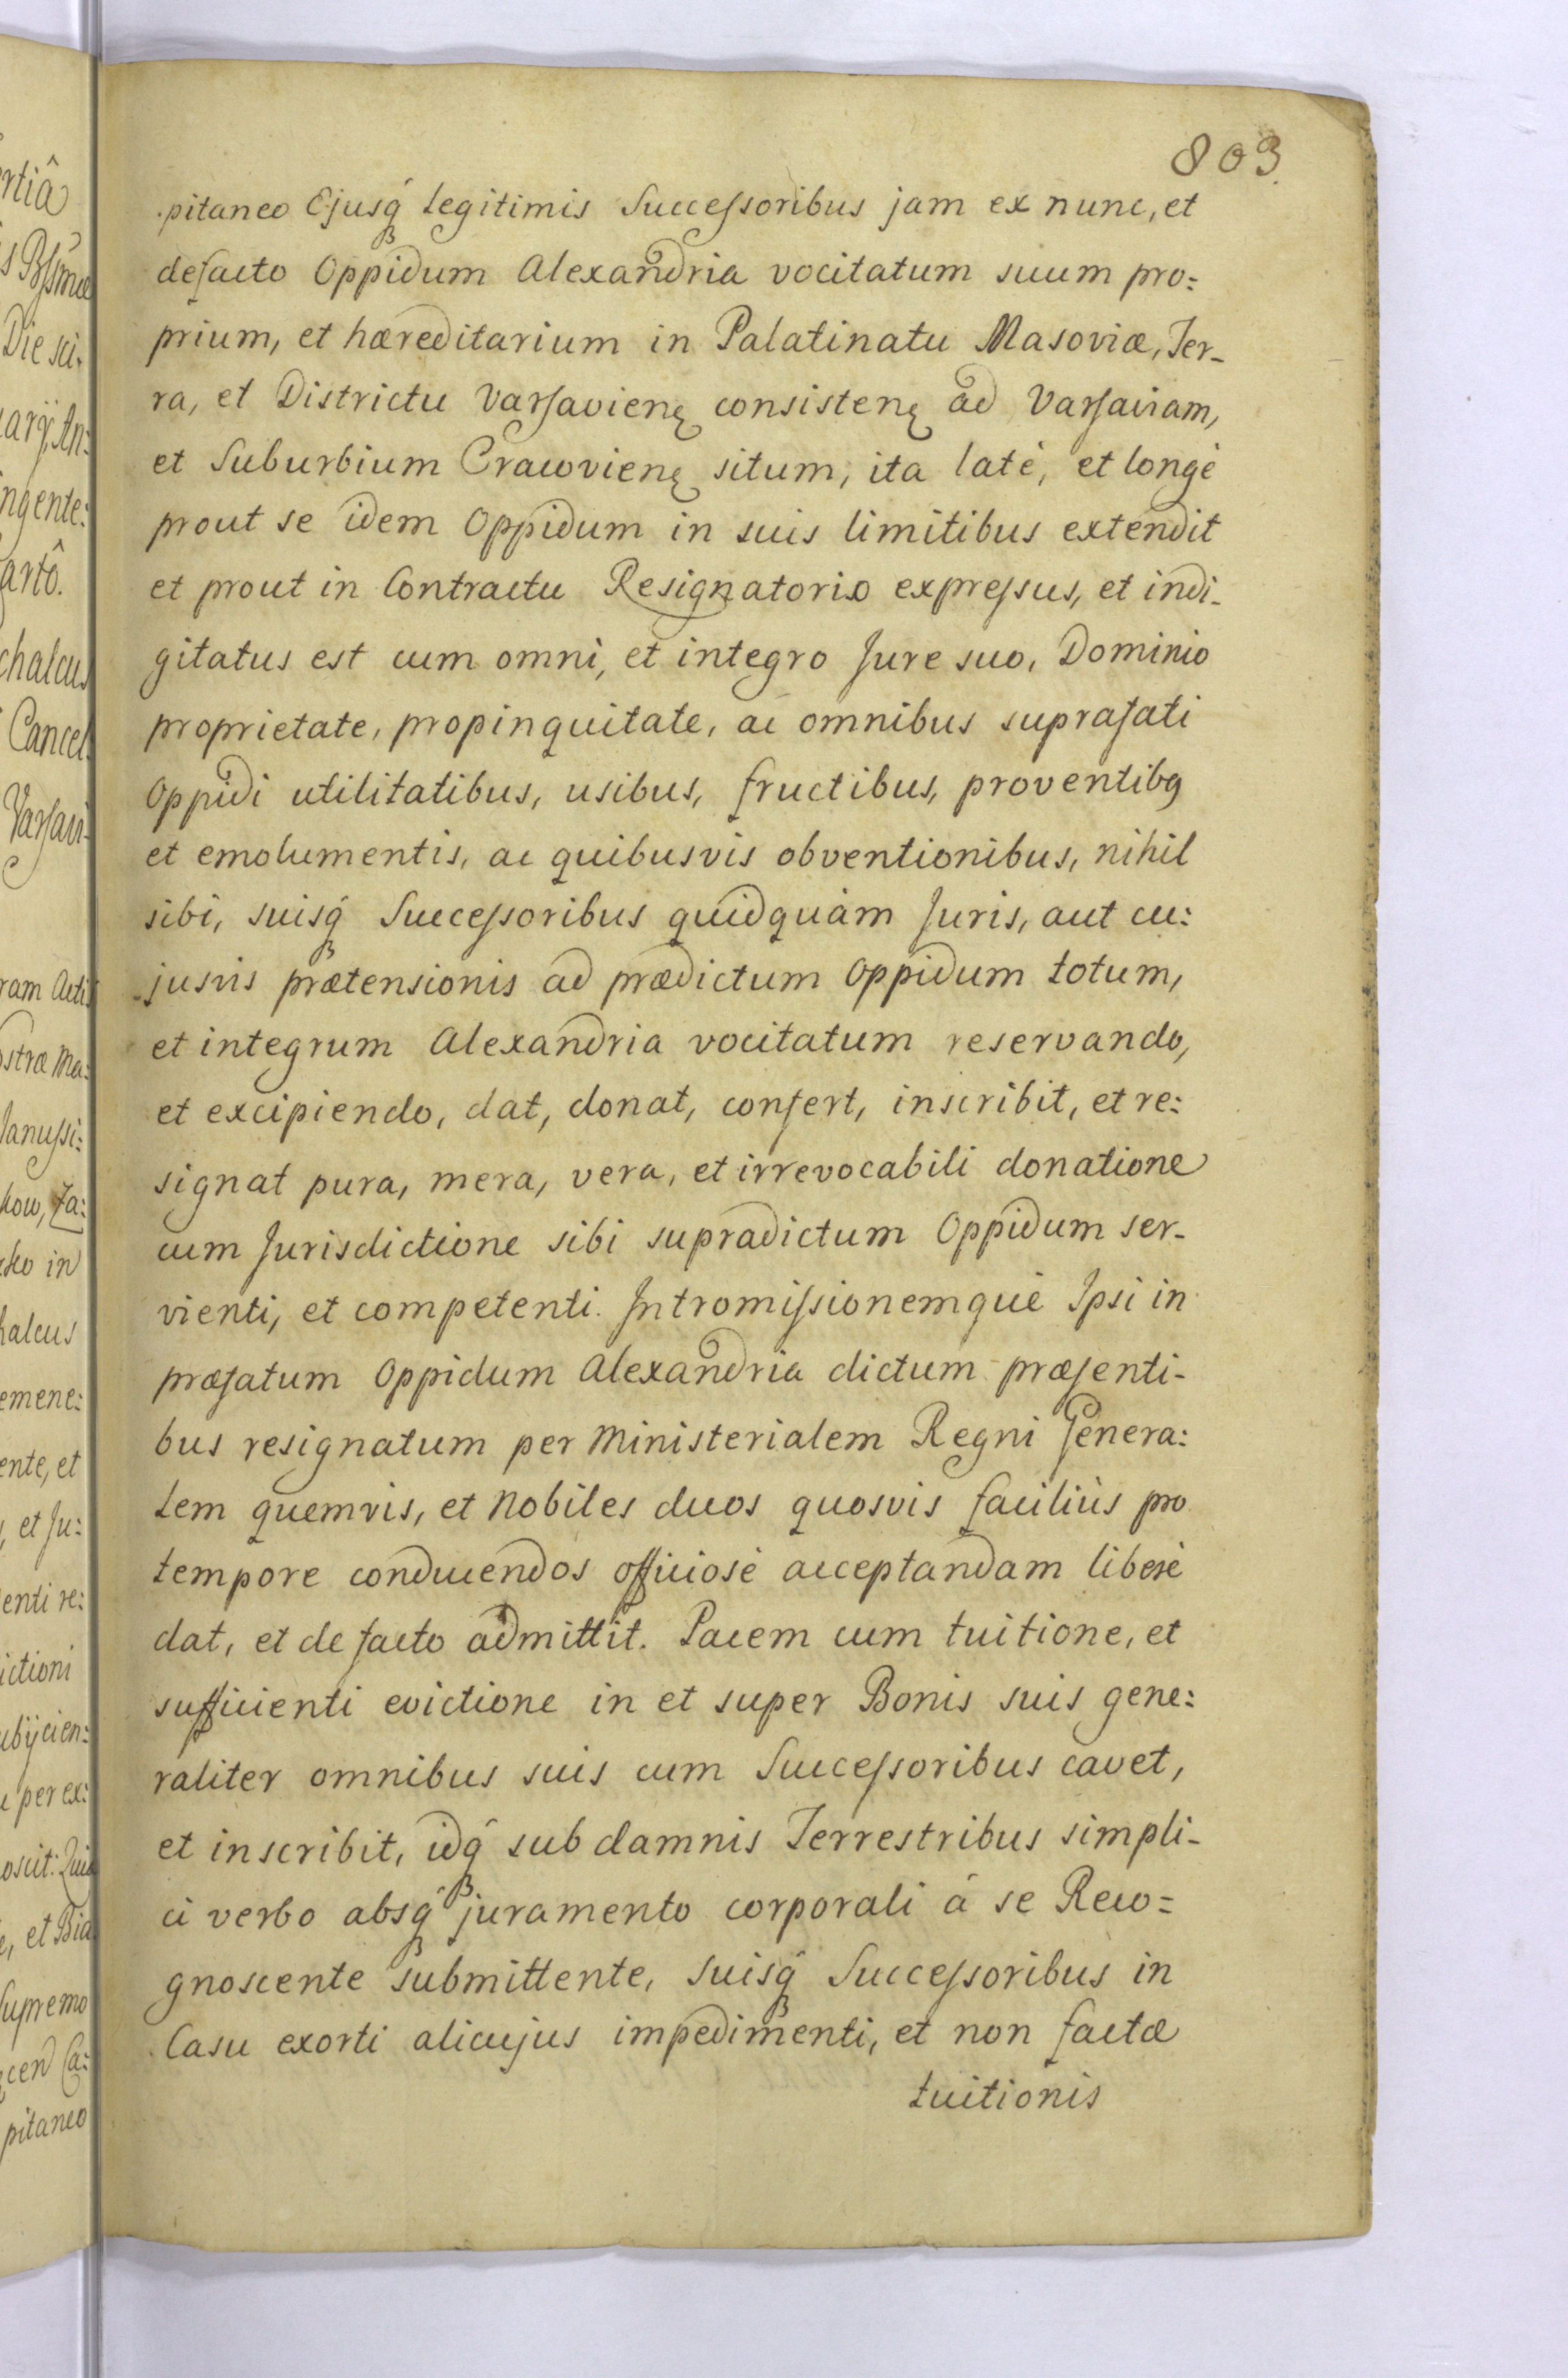 803.
pitaneo Ejusq́ legitimis Successoribus jam ex nunc, et
defacto Oppidum Alexandria vocitatum suum pro:
prium, et hæreditarium in Palatinatu Masoviæ, Ter-
ra, et Districtu Varsavienę consistenę ad Varsaviam,
et Suburbium Cracovienę situm, ita latè, et longè
prout se idem Oppidum in suis limitibus extendit
et prout in Contractu Resignatorio expressus, et indi-
gitatus est cum omni, et integro Jure suo, Dominio
proprietate, propinquitate, ac omnibus suprafati
Oppidi utilitatibus, usibus, fructibus, proventibꝯ
et emolumentis, ac quibusvis obventionibus, nihil
sibi, suisq́ Successoribus quidquàm Juris, aut cu:
jusvis prætensionis ad prædictum Oppidum totum,
et integrum Alexandria vocitatum reservando,
et excipiendo, dat, donat, confert, inscribit, et re:
signat pura, mera, vera, et irrevocabili donatione
cum Jurisdictione sibi supradictum Oppidum ser-
vienti, et competenti. Intromissionemquè Ipsi in
præfatum Oppidum Alexandria dictum præsenti-
bus resignatum per Ministerialem Regni Genera:
lem quemvis, et Nobiles duos quosvis faciliùs pro
tempore conducendos officiosè acceptandam liberè
dat, et de facto admittit. Pacem cum tuitione, et
sufficienti evictione in et super Bonis suis gene:
raliter omnibus suis cum Successoribus cavet,
et inscribit, idq́ sub damnis Terrestribus simpli-
ci verbo absq́ juramento corporali á se Reco=
gnoscente submittente, suisq́ Successoribus in
Casu exorti alicujus impedimenti, et non factæ
tuitionis